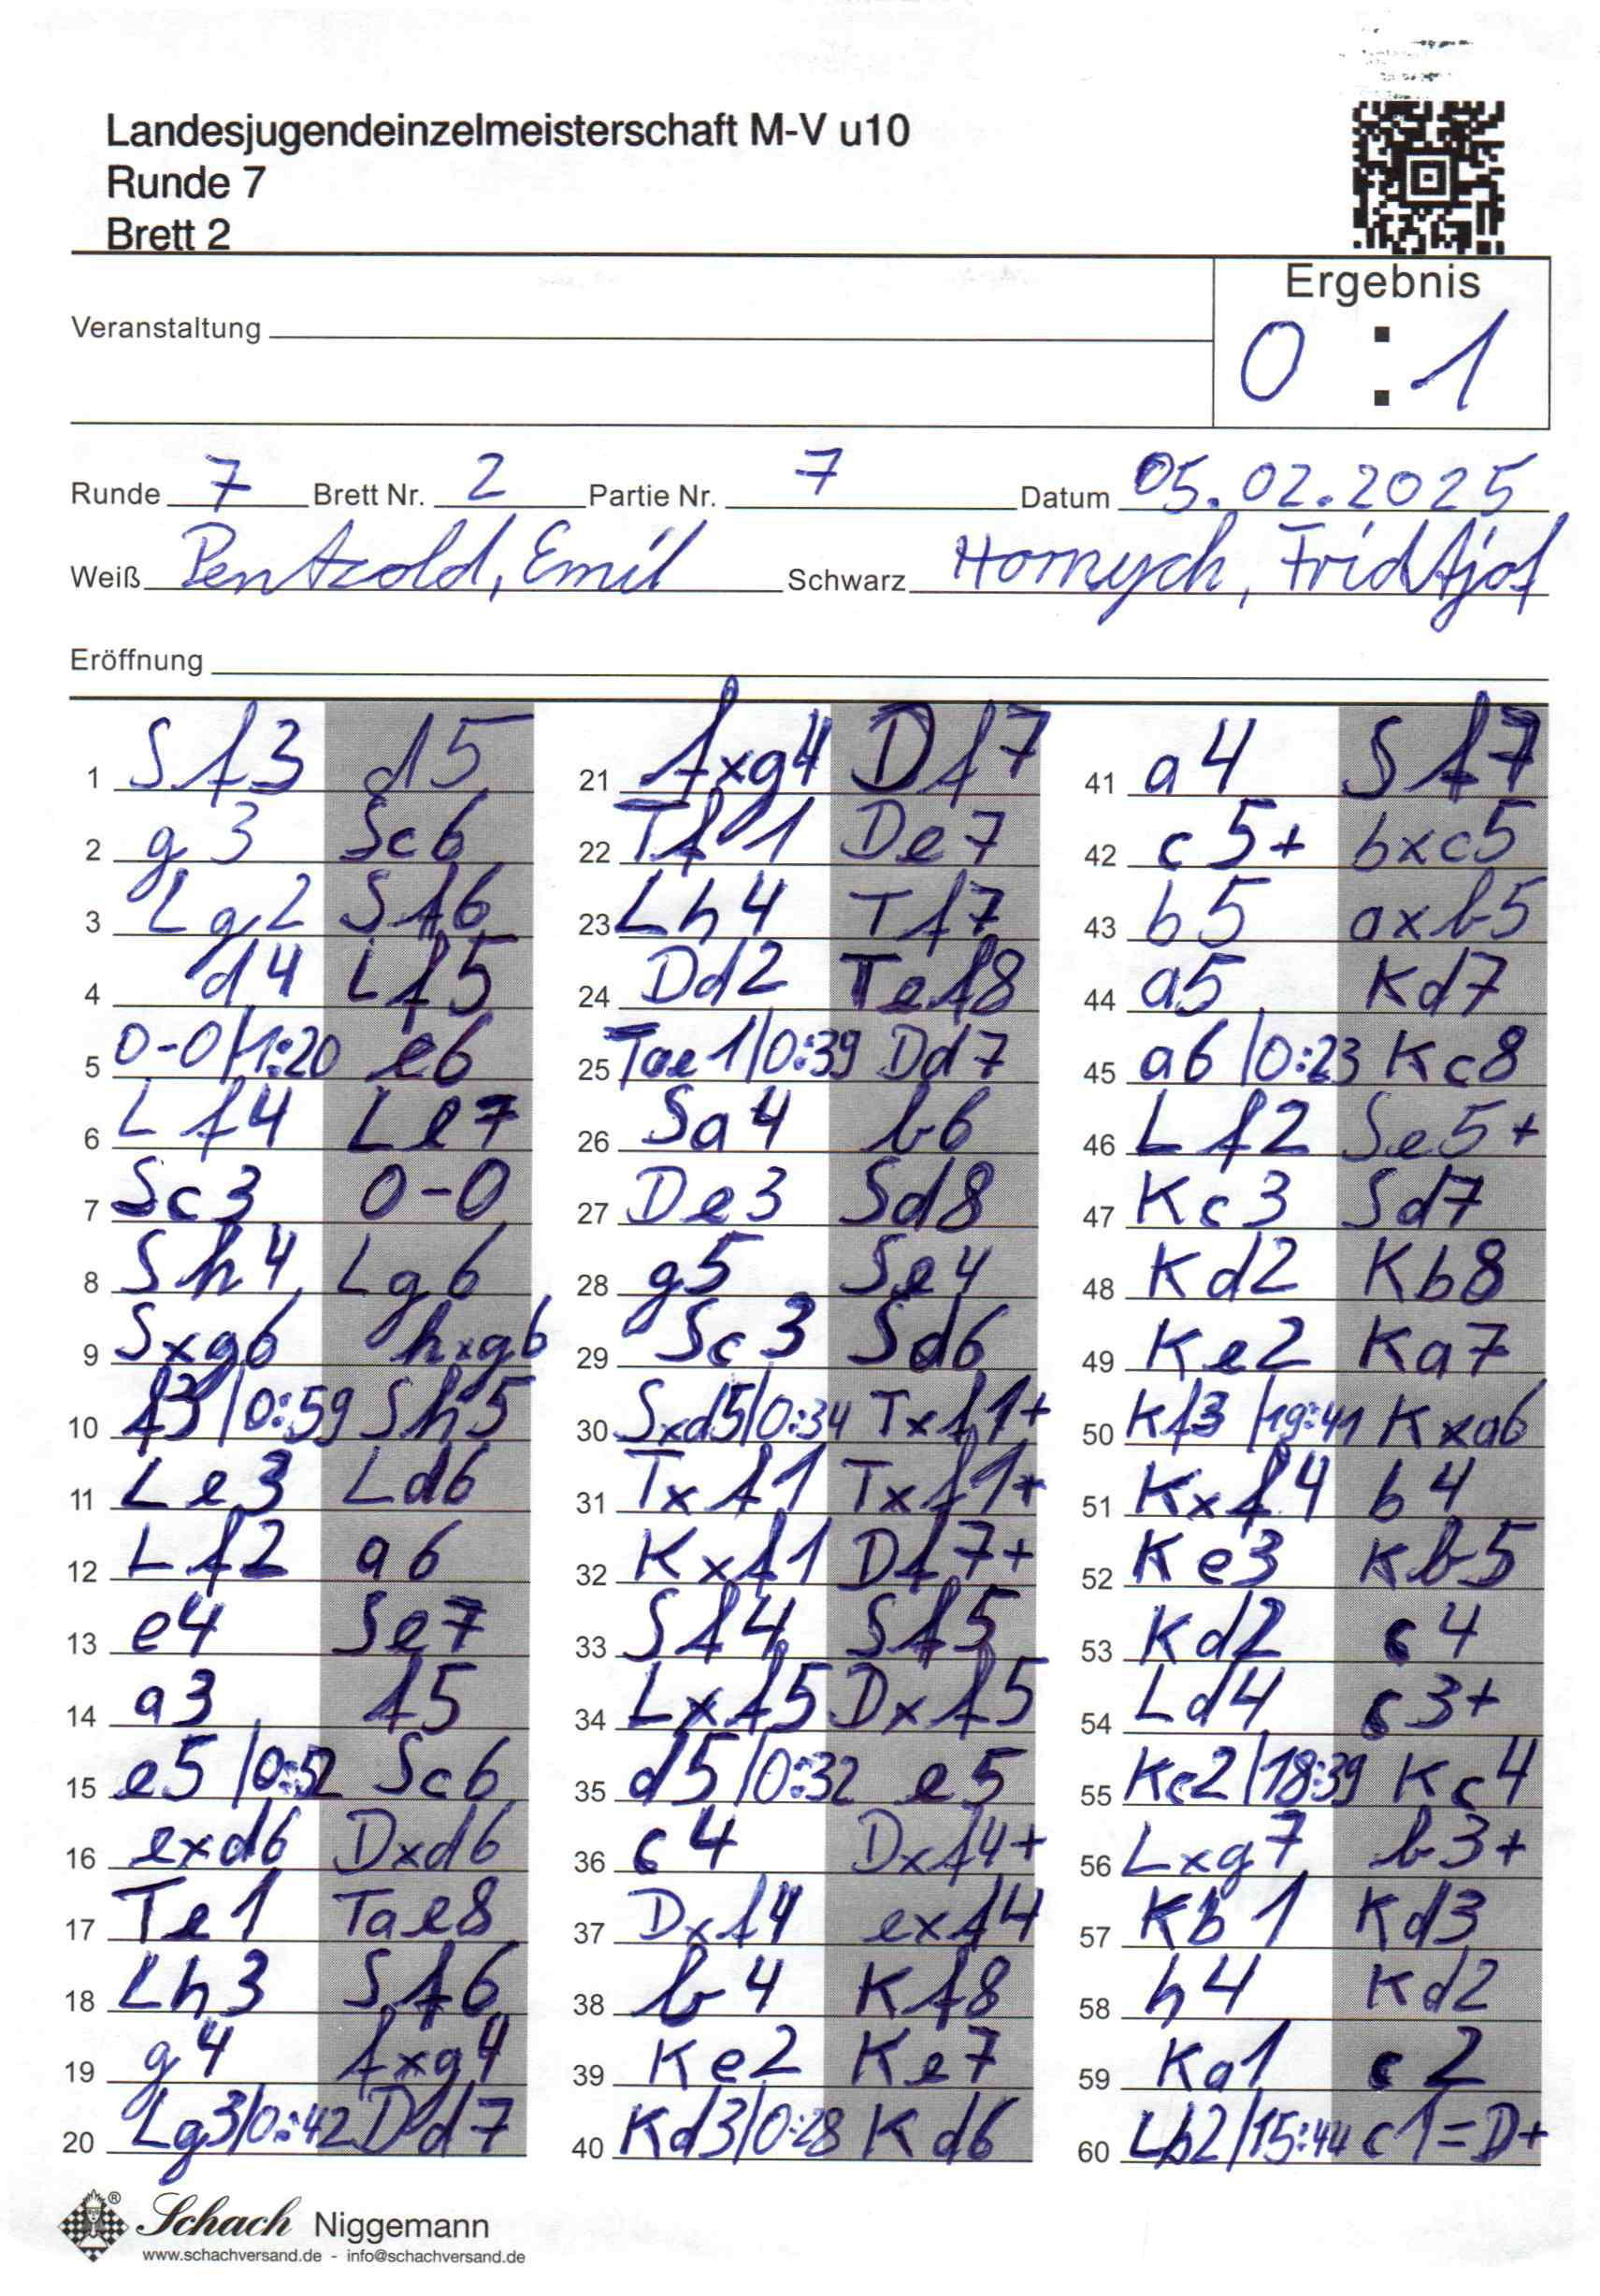 Landesjugendeinzelmeisterschaft M-V u10
Runde 7
Brett 2
Ergebnis
0 : 1
Veranstaltung
Runde 7 Brett Nr. 2 Partie Nr. 7 Datum 05.02.2025
Weiß Pentzold, Emil Schwarz Hornych, Fridtjof
Eröffnung
1 Sf3 d5
2 g3 Sc6
3 Lg2 Sf6
4 d4 Lf5
5 0-0/1:20 e6
6 Lf4 Le7
7 Sc3 0-0
8 Sh4 Lg6
9 Sxg6 hxg6
10 f3/0:59 Sh5
11 Le3 Ld6
12 Lf2 a6
13 e4 Se7
14 a3 f5
15 e5/0:52 Sc6
16 exd6 Dxd6
17 Te1 Tae8
18 Lh3 Sf6
19 g4 fxg4
20 Lg3/0:42 Dd7
21 fxg4 Df7
22 Tf1 De7
23 Lh4 Tf7
24 Dd2 Tef8
25 Tae1/0:39 Dd7
26 Sa4 b6
27 De3 Sd8
28 g5 Se4
29 Sc3 Sd6
30 Sxd5/0:34 Txf1+
31 Txf1 Txf1+
32 Kxf1 Df7+
33 Sf4 Sf5
34 Lxf5 Dxf5
35 d5/0:32 e5
36 c4 Dxf4+
37 Dxf4 exf4
38 b4 Kf8
39 Ke2 Ke7
40 Kd3/0:28 Kd6
41 a4 Sf7
42 c5+ bxc5
43 b5 axb5
44 a5 Kd7
45 a6/0:23 Kc8
46 Lf2 Se5+
47 Kc3 Sd7
48 Kd2 Kb8
49 Ke2 Ka7
50 Kf3/19:41 Kxa6
51 Kxf4 b4
52 Ke3 Kb5
53 Kd2 c4
54 Ld4 c3+
55 Kc2/18:39 Kc4
56 Lxg7 b3+
57 Kb1 Kd3
58 h4 Kd2
59 Ka1 c2
60 Lb2/15:44 c1=D+
Schach Niggemann
www.schachversand.de - info@schachversand.de